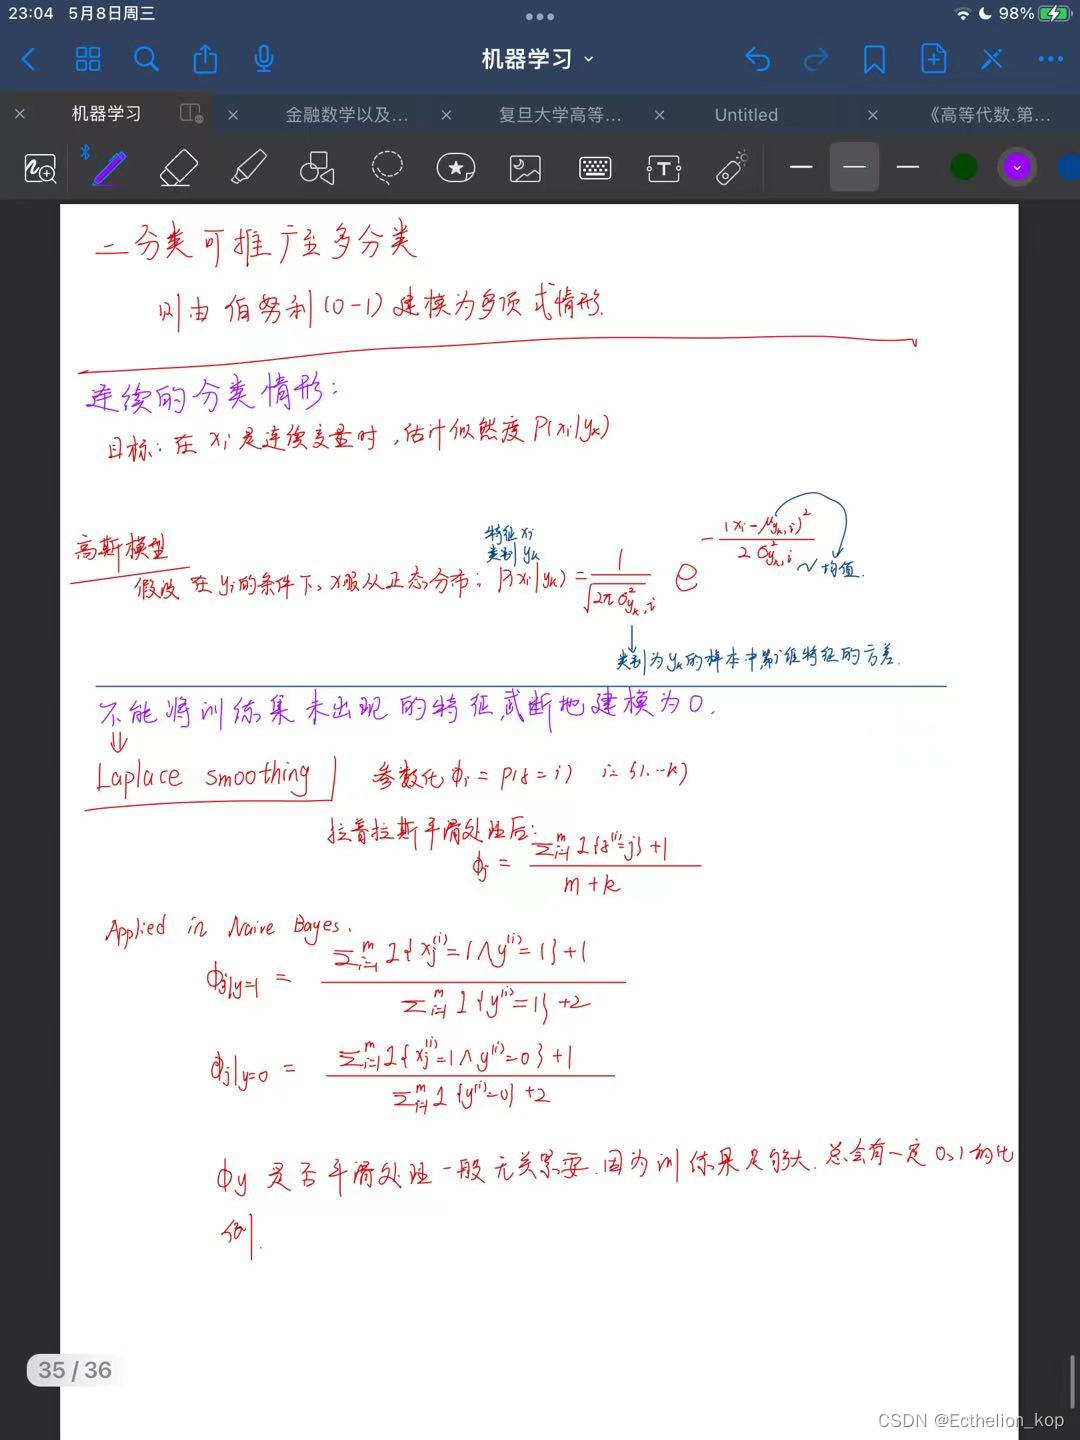 23:04 5月8日周三
98%
机器学习
机器学习
金融数学以及...
复旦大学高等...
Untitled
《高等代数.第...
二分类可推广至多分类
则由伯努利(0-1)建模为多项式情形.
连续的分类情形:
目标: 在 xi 是连续变量时,估计似然度 P(xi|yk)
高斯模型
特征 xi
类别 yk
假设 在 yi的条件下、x服从正态分布: P(xi|yk) = 1/√(2πσ²yk,i) e^(-(xi-μyk,i)²/(2σ²yk,i))
~均值.
类别为 yk的样本中第i维特征的方差.
不能将训练集未出现的特征武断地建模为0.
Laplace smoothing
参数化 ϕi = P(z=i) i={1...k}
拉普拉斯平滑处理后:
ϕj = (∑_{i=1}^m 1{z^(i)=j}+1)/(m+k)
Applied in Naive Bayes.
ϕj|y=1 = (∑_{i=1}^m 1{xj^(i)=1∧y^(i)=1}+1)/(∑_{i=1}^m 1{y^(i)=1}+2)
ϕj|y=0 = (∑_{i=1}^m 1{xj^(i)=1∧y^(i)=0}+1)/(∑_{i=1}^m 1{y^(i)=0}+2)
ϕy 是否平滑处理一般无关紧要.因为训练集足够大.总会有一定0,1的比
例.
35 / 36
CSDN @Ecthelion_kop